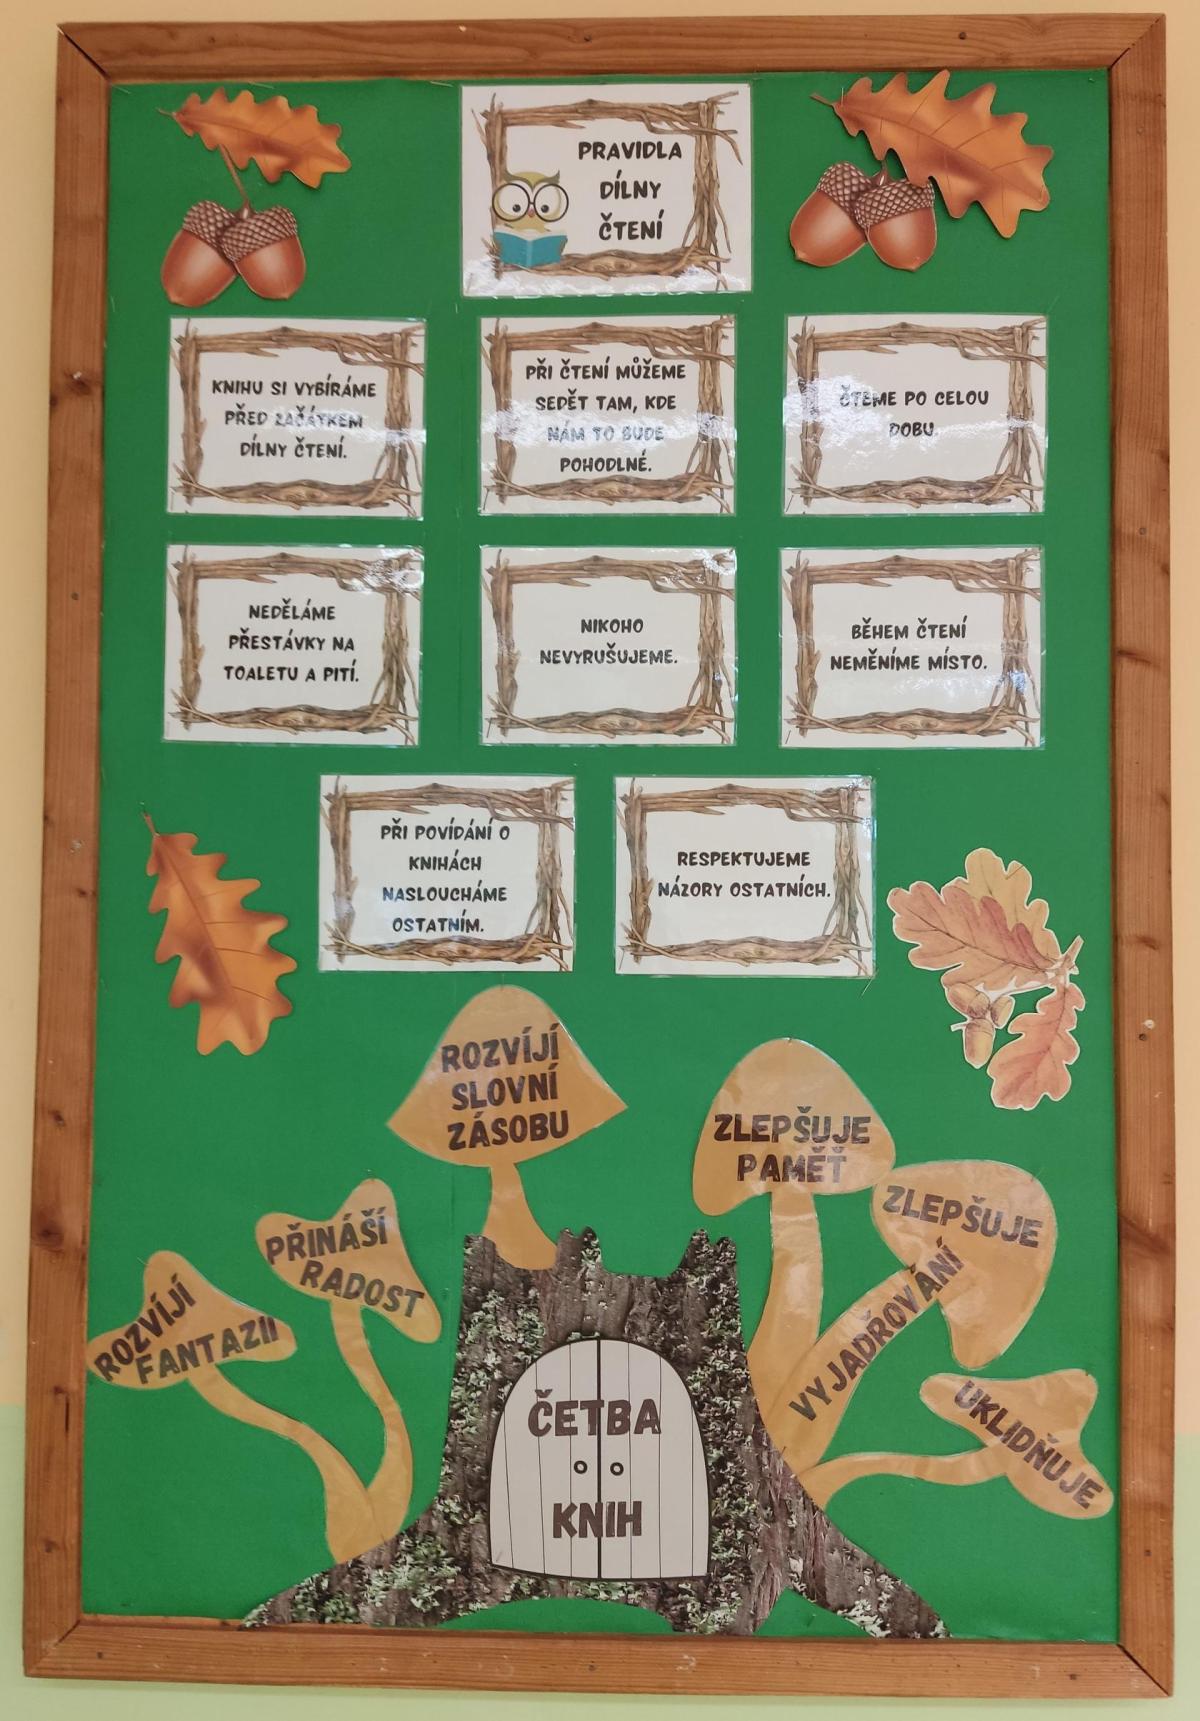 PRAVIDLA
DÍLNY
ČTENÍ
KNIHU SI VYBÍRÁME
PŘED ZAČÁTKEM
DÍLNY ČTENÍ.
PŘI ČTENÍ MŮŽEME
SEDĚT TAM, KDE
NÁM TO BUDE
POHODLNÉ.
ČTEME PO CELOU
DOBU.
NEDĚLÁME
PŘESTÁVKY NA
TOALETU A PITÍ.
NIKOHO
NEVYRUŠUJEME.
BĚHEM ČTENÍ
NEMĚNÍME MÍSTO.
PŘI POVÍDÁNÍ O
KNIHÁCH
NASLOUCHÁME
OSTATNÍM.
RESPEKTUJEME
NÁZORY OSTATNÍCH.
ROZVÍJÍ
SLOVNÍ
ZÁSOBU
ZLEPŠUJE
PAMĚŤ
ZLEPŠUJE
VYJADŘOVÁNÍ
PŘINÁŠÍ
RADOST
ROZVÍJÍ
FANTAZII
UKLIDŇUJE
ČETBA
KNIH